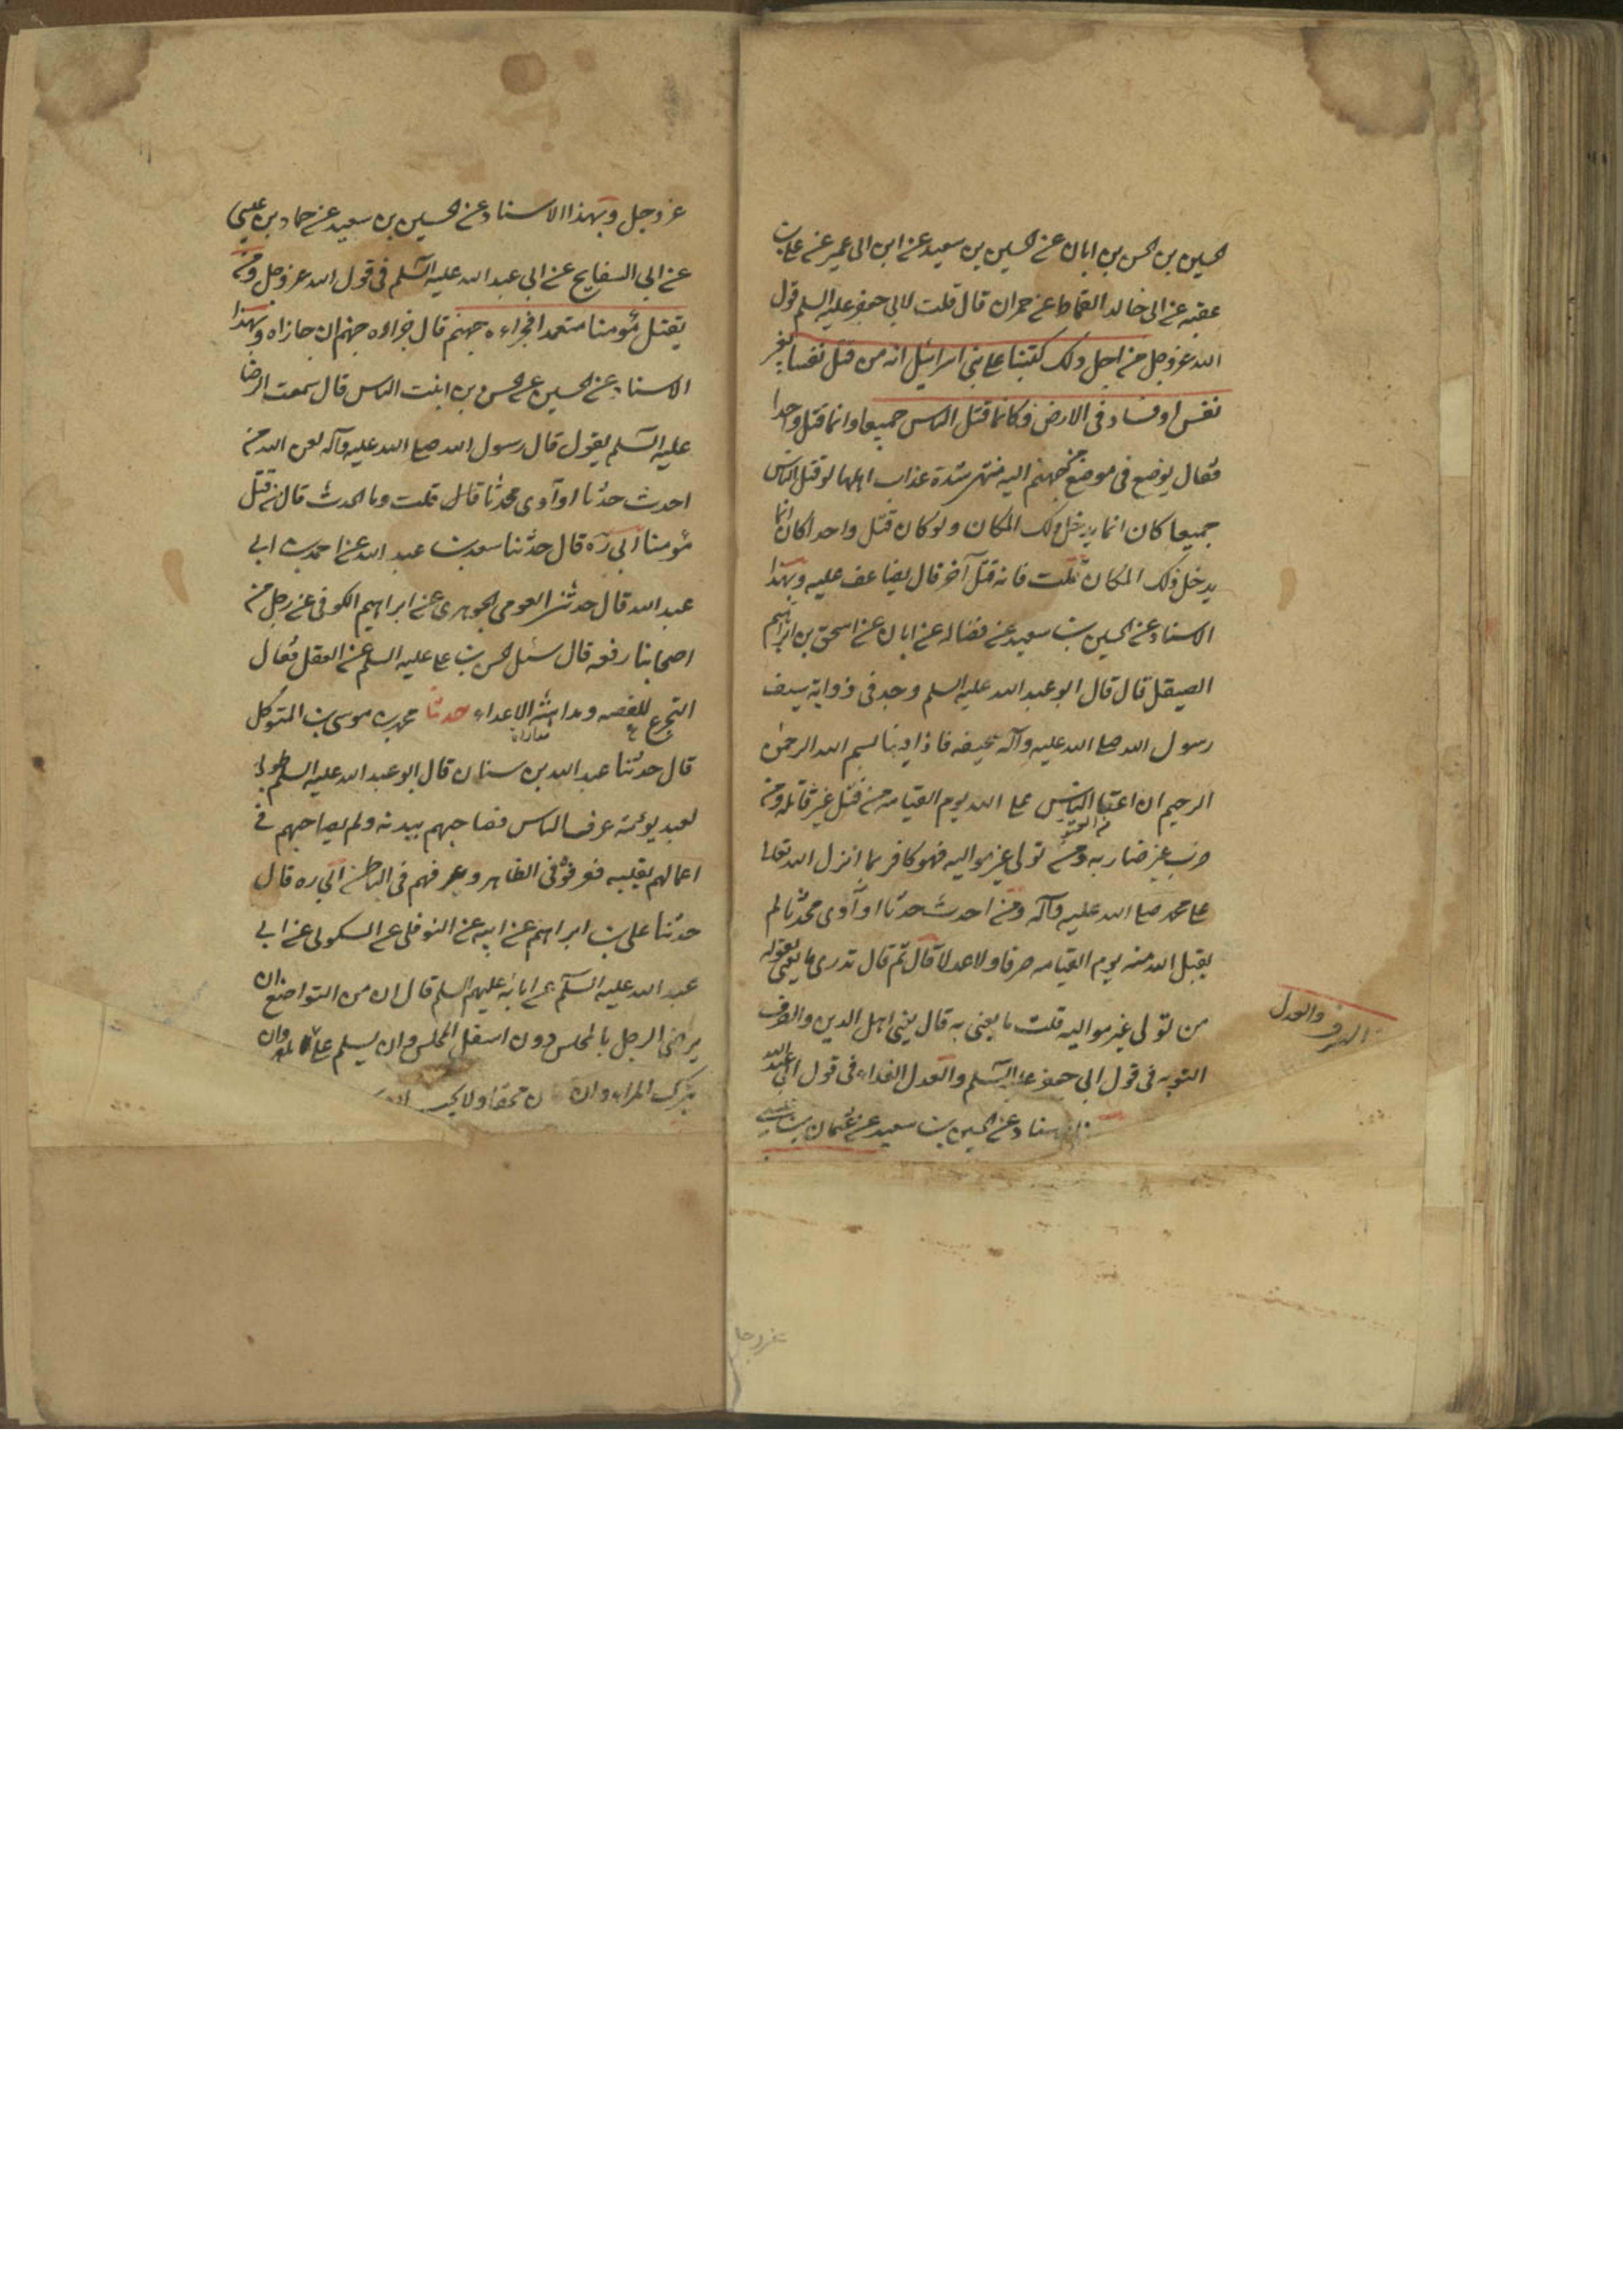 الحسين بن الحسن بن ابان عن الحسين بن سعيد عن ابن ابى عمير عن على بن
عقبه عن ابى خالد القماط عن حمران قال قلت لابى جعفر عليه السلم قول
الله عز وجل من اجل ذلك كتبنا على بنى اسرائيل انه من قتل نفسا بغير
نفس او فساد فى الارض فكانما قتل الناس جميعا وانما قتل واحدا
فقال يوضع فى موضع من جهنم اليه منتهى شدة عذاب اهلها لو قتل الناس
جميعا كان انما يدخل ذلك المكان ولو كان قتل واحدا كان انما
يدخل ذلك المكان قلت فانه قتل آخر قال يضاعف عليه وبهذا
الاسناد عن الحسين بن سعيد عن فضاله عن ابان عن اسحق بن ابراهيم
الصيقل قال قال ابو عبد الله عليه السلم وجد فى ذوابة سيف
رسول الله صلى الله عليه وآله صحيفه فاذا فيها بسم الله الرحمن
الرحيم ان اعتى الناس على الله يوم القيامه من قتل غير قاتله ومن
ضرب غير ضاربه ومن تولى غير مواليه فهو كافر بما انزل الله تعالى
على محمد صلى الله عليه وآله ومن احدث حدثا او آوى محدثا لم
يقبل الله منه يوم القيامه صرفا ولا عدلا قال ثم قال تدرى ما يعنى بقوله
من تولى غير مواليه قلت ما يعنى به قال يعنى اهل الدين والصرف
التوبه فى قول ابى جعفر عليه السلم والعدل الفداء فى قول ابى عبد الله
الاسناد عن الحسين بن سعيد عن عثمان بن عيسى
الصرف والعدل
عز وجل وبهذا الاسناد عن الحسين بن سعيد عن حماد بن عيسى
عن ابى السفايج عن ابى عبد الله عليه السلم فى قول الله عز وجل ومن
يقتل مؤمنا متعمدا فجزاءه جهنم قال جزاءه جهنم ان جازاه وبهذا
الاسناد عن الحسين عن الحسن بن ابنت الياس قال سمعت الرضا
عليه السلم يقول قال رسول الله صلى الله عليه وآله لعن الله من
احدث حدثا او آوى محدثا قال قلت وما الحدث قال من قتل
مؤمنا ابى ره قال حدثنا سعد بن عبد الله عن احمد بن ابى
عبد الله قال حدثنى العومى الجوهرى عن ابراهيم الكوفى عن رجل من
اصحابنا رفعه قال سئل الحسن بن على عليه السلم عن العقل فقال
التجرع للغصه ومداهنة الاعداء حدثنا محمد بن موسى بن المتوكل
مداراة
قال حدثنا عبد الله بن سنان قال ابو عبد الله عليه السلم طوبى
لعبد يؤمنه عرف الناس فصاحبهم ببدنه ولم يصاحبهم فى
اعمالهم بقلبه فعرفوه فى الظاهر وعرفهم فى الباطن ابى ره قال
حدثنا على بن ابراهيم عن ابيه عن النوفلى عن السكونى عن ابى
عبد الله عليه السلم عن ابائه عليهم السلم قال ان من التواضع ان
يرضى الرجل بالمجلس دون اسفل المجلس وان يسلم على وان
يترك المراء وان ن محقا ولا يحب
عز وجل